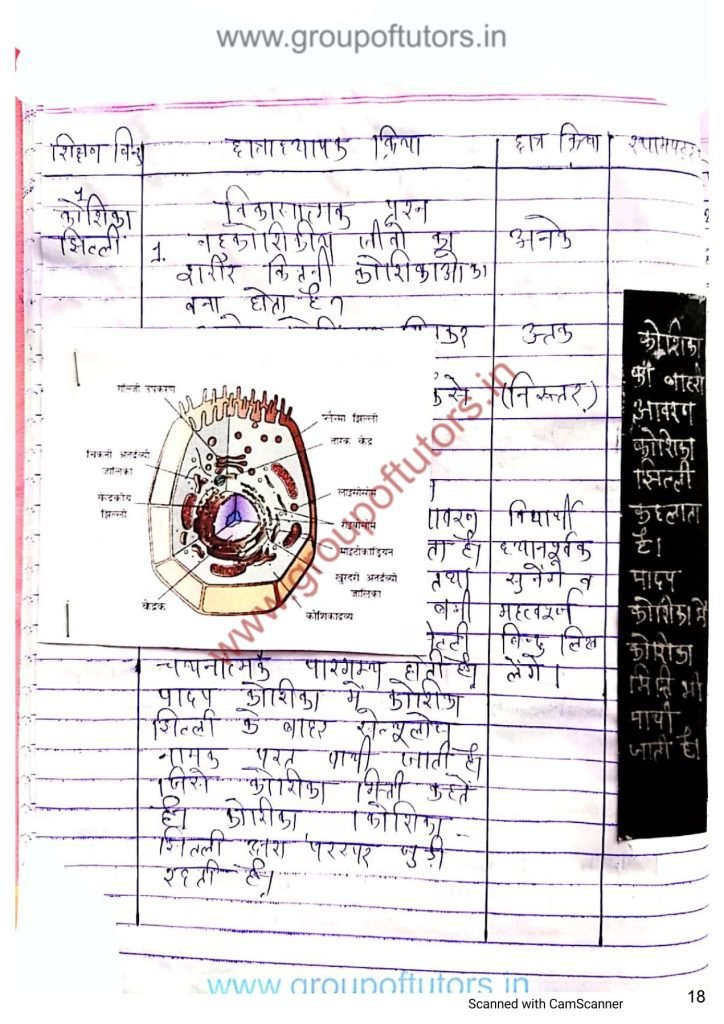 www.groupoftutors.in
शिक्षण बिन्दु छात्राध्यापक क्रिया छात्र क्रिया श्यामपट्ट
1
कोशिका झिल्ली
विकासात्मक प्रश्न
1. बहुकोशिकीय जीवो का
शरीर कितनी कोशिकाओ का
बना होता है?
अनेक
ऊतक
(निरूत्तर)
गॉल्जी उपकरण
प्लैज्मा झिल्ली
तारक केंद्र
चिकनी अन्तर्द्रव्यी
जालिका
केंद्रकीय
झिल्ली
लाइसोसोम
राइबोसोम
माइटोकांड्रियन
खुरदरी अन्तर्द्रव्यी
जालिका
केंद्रक
कोशिकाद्रव्य
www.groupoftutors.in
तथा
चयनात्मक पारगम्य होती है।
पादप कोशिका में कोशिका
झिल्ली के बाहर सेल्यूलोष
नामक परत पायी जाती है।
जिसे कोशिका भित्ती कहते
है। कोशिका कोशिका
झिल्ली द्वारा परस्पर जुड़ी
रहती है।
विद्यार्थी
ध्यानपूर्वक
सुनेंगे व
महत्वपूर्ण
बिन्दु लिख
लेंगे।
कोशिका
का बाहरी
आवरण
कोशिका
झिल्ली
कहलाता
है।
पादप
कोशिका में
कोशिका
भित्ति भी
पायी
जाती है।
www.groupoftutors.in
Scanned with CamScanner
18